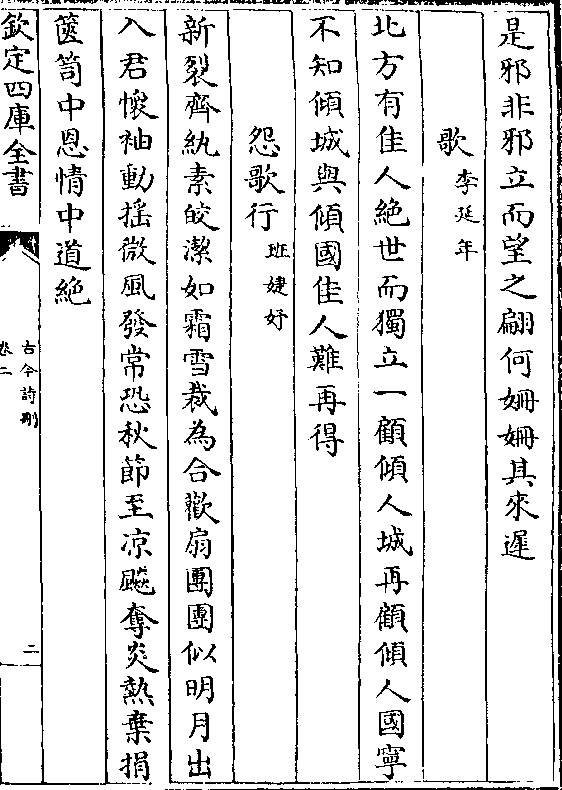 是邪非邪立而望之翩何姍姍其來遲
歌李延年
北方有佳人絶世而獨立一顧傾人城再顧傾人國寧
不知傾城與傾國佳人難再得
怨歌行班婕妤
新裂齊紈素皎潔如霜雪裁為合歡扇團團似明月出
入君懷袖動揺微風發常恐秋節至凉飈奪炎熱棄捐
篋笥中恩情中道絶
欽定四庫全書
古今詩刪
卷二
二